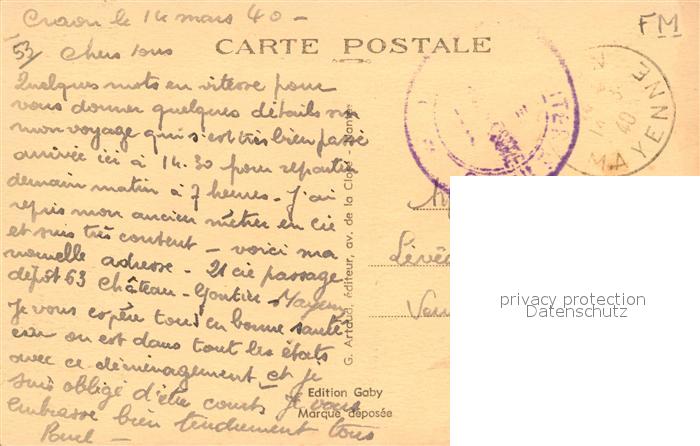 Craon le 14 mars 40 -
FM
53
Chers tous
CARTE POSTALE
Quelques mots en vitesse pour
vous donner quelques détails sur
mon voyage qui s'est très bien passé
arrivée ici à 14.30 pour repartir
demain matin à 7 heures - J'ai
repris mon ancien métier en cie
et suis très content - voici ma
nouvelle adresse - 21 cie passage
dépôt 63 Château-Gontier - Mayenne
Je vous espère tous en bonne santé
car on est dans tout les états
avec ce déménagement et je
suis obligé d'être court Je vous
embrasse bien tendrement tous
Paul -
G. Artaud, éditeur, av. de la Close, Nantes
Edition Gaby
Marque déposée
40
MAYENNE
privacy protection
Datenschutz